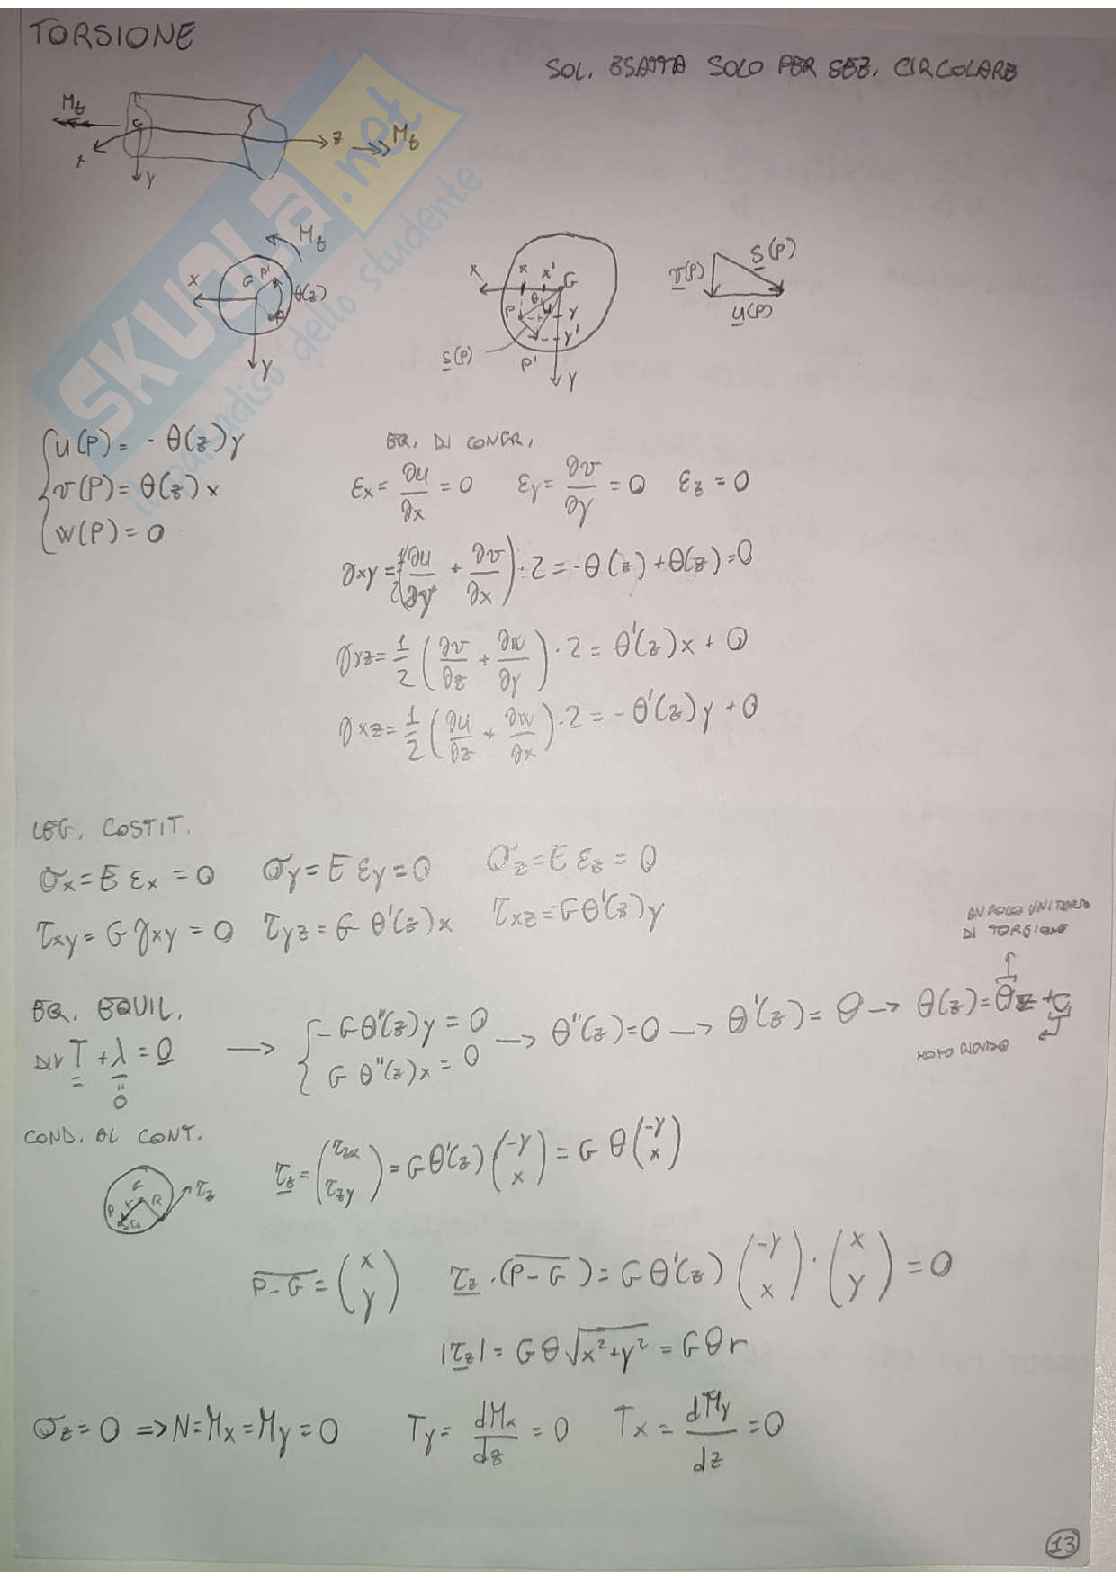 TORSIONE
SOL. ESATTA SOLO PER SEZ. CIRCOLARE
M_t
G
x
y
z
M_t
M_t
G P'
x
θ(z)
P
y
x x x' G
θ
P y
y'
s(P)
P'
y
v(P) s(P)
u(P)
SKUOLA.net
paradiso dello studente
{ u(P) = - θ(z) y
v(P) = θ(z) x
w(P) = 0
EQ. DI CONGR.
ε_x = ∂u/∂x = 0 ε_y = ∂v/∂y = 0 ε_z = 0
γ_xy = 1/2 (∂u/∂y + ∂v/∂x) · 2 = -θ(z) + θ(z) = 0
γ_yz = 1/2 (∂v/∂z + ∂w/∂y) · 2 = θ'(z) x + 0
γ_xz = 1/2 (∂u/∂z + ∂w/∂x) · 2 = - θ'(z) y + 0
LEG. COSTIT.
σ_x = E ε_x = 0 σ_y = E ε_y = 0 σ_z = E ε_z = 0
τ_xy = G γ_xy = 0 τ_yz = G θ'(z) x τ_xz = G θ'(z) y
ANGOLO UNITARIO
DI TORSIONE
EQ. EQUIL.
div T + λ = 0 → { - G θ''(z) y = 0 → θ''(z) = 0 → θ'(z) = θ → θ(z) = θz + c_1
G θ''(z) x = 0
0
MOTO RIGIDO
COND. AL CONT.
G P r R τ_z
τ_z = (τ_zx τ_zy) = G θ'(z) (-y x) = G θ (-y x)
P - G = (x y) τ_z · (P - G) = G θ'(z) (-y x) · (x y) = 0
|τ_z| = G θ √(x² + y²) = G θ r
σ_z = 0 ⇒ N = M_x = M_y = 0 T_y = dM_x/dz = 0 T_x = dM_y/dz = 0
13